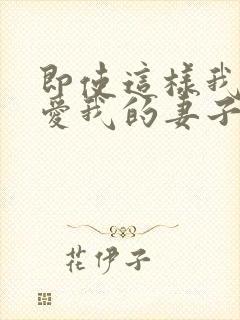 即使這樣我
愛我的妻子
花伊子